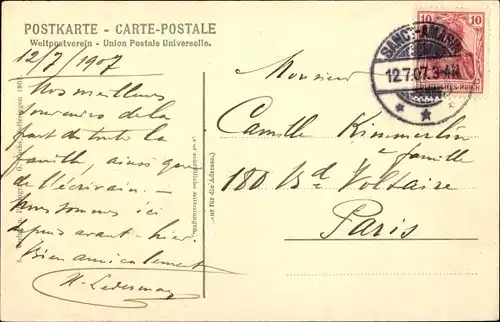 POSTKARTE - CARTE-POSTALE
Weltpostverein - Union Postale Universelle.
12/7/1907
Nos meilleurs
souvenirs de la
part de toute la
famille, ainsi que
de l'écrivain. —
Nous sommes ici
depuis avant-hier.
Bien amicalement
(Nur für die Adresse.)
10 10
DEUTSCHES REICH
12.7.07. 3-4N
* *
Monsieur
Camille
& famille
180 Bd Voltaire
Paris